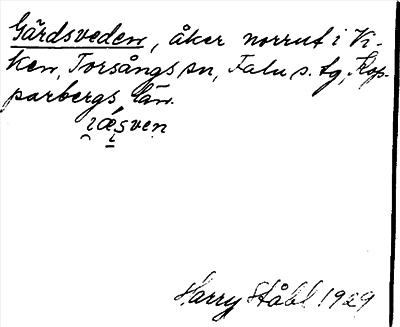 Gärdsveden, åker norrut i Vi-
ken, Torsångs sn, Falu s. tg, Kop-
parbergs län.
Harry Ståhl 1929